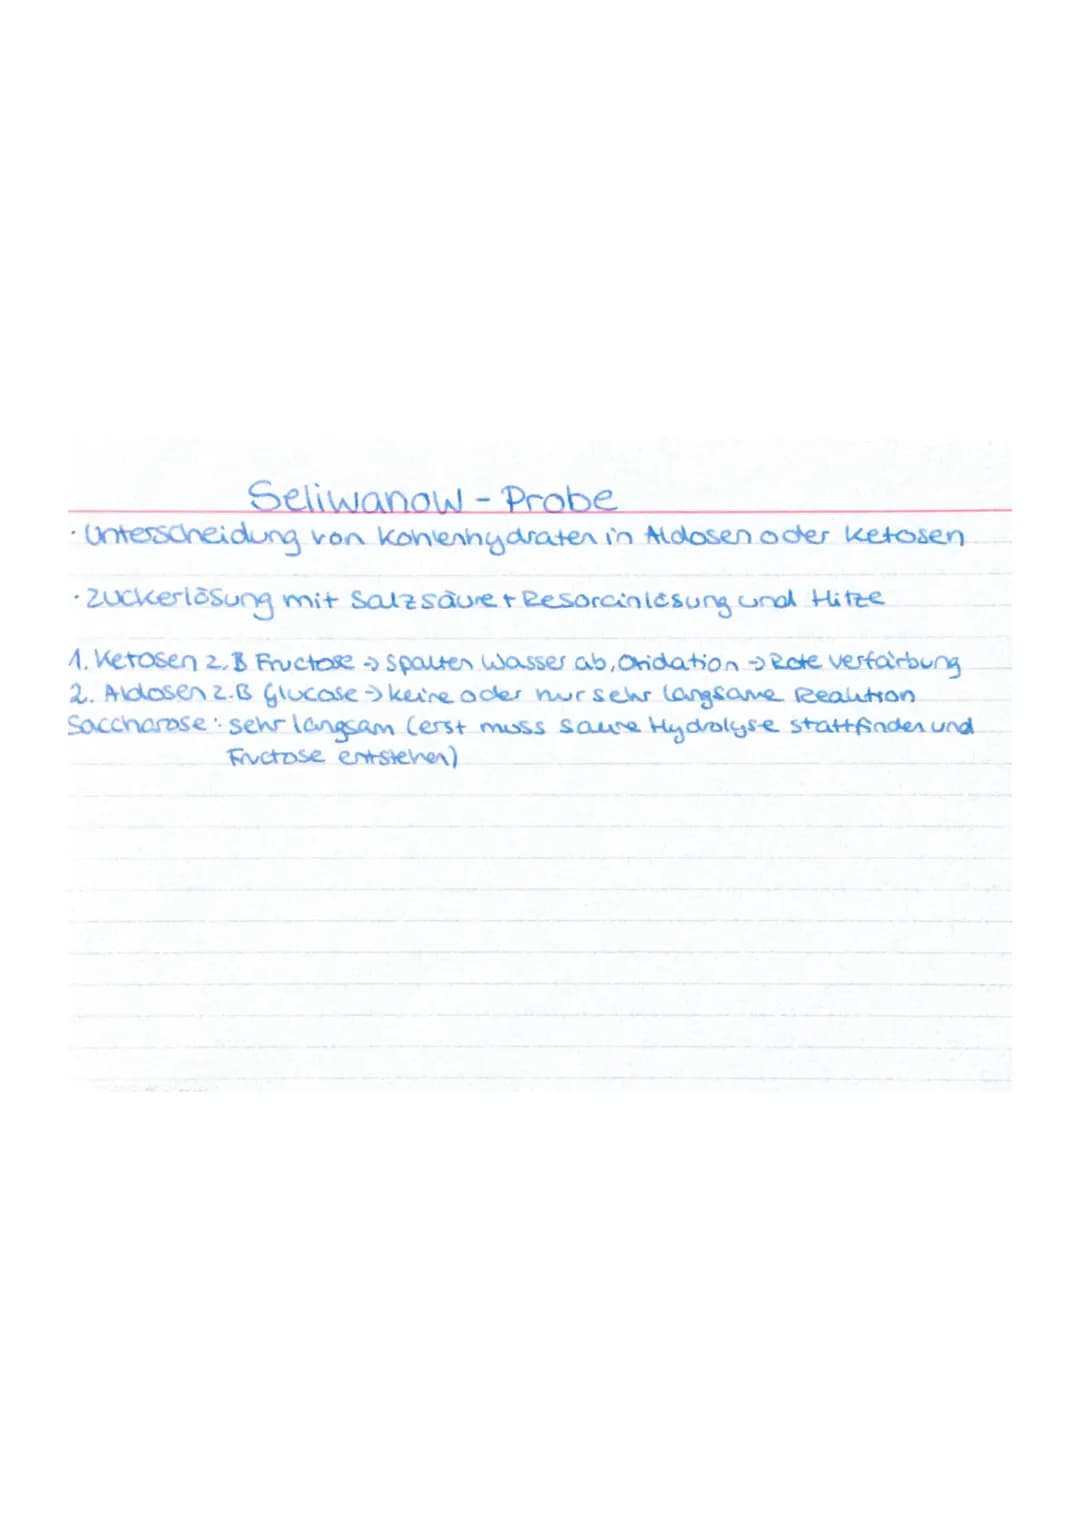 Seliwanow - Probe
· Unterscheidung von Kohlenhydraten in Aldosen oder Ketosen
· Zuckerlösung mit Salzsäure + Resorcinlösung und Hitze
1. Ketosen z.B Fructose → spalten Wasser ab, Oxidation → Rote verfärbung
2. Aldosen z.B Glucose → keine oder nur sehr langsame Reaktion
Saccharose: sehr langsam (erst muss saure Hydrolyse stattfinden und
Fructose entstehen)